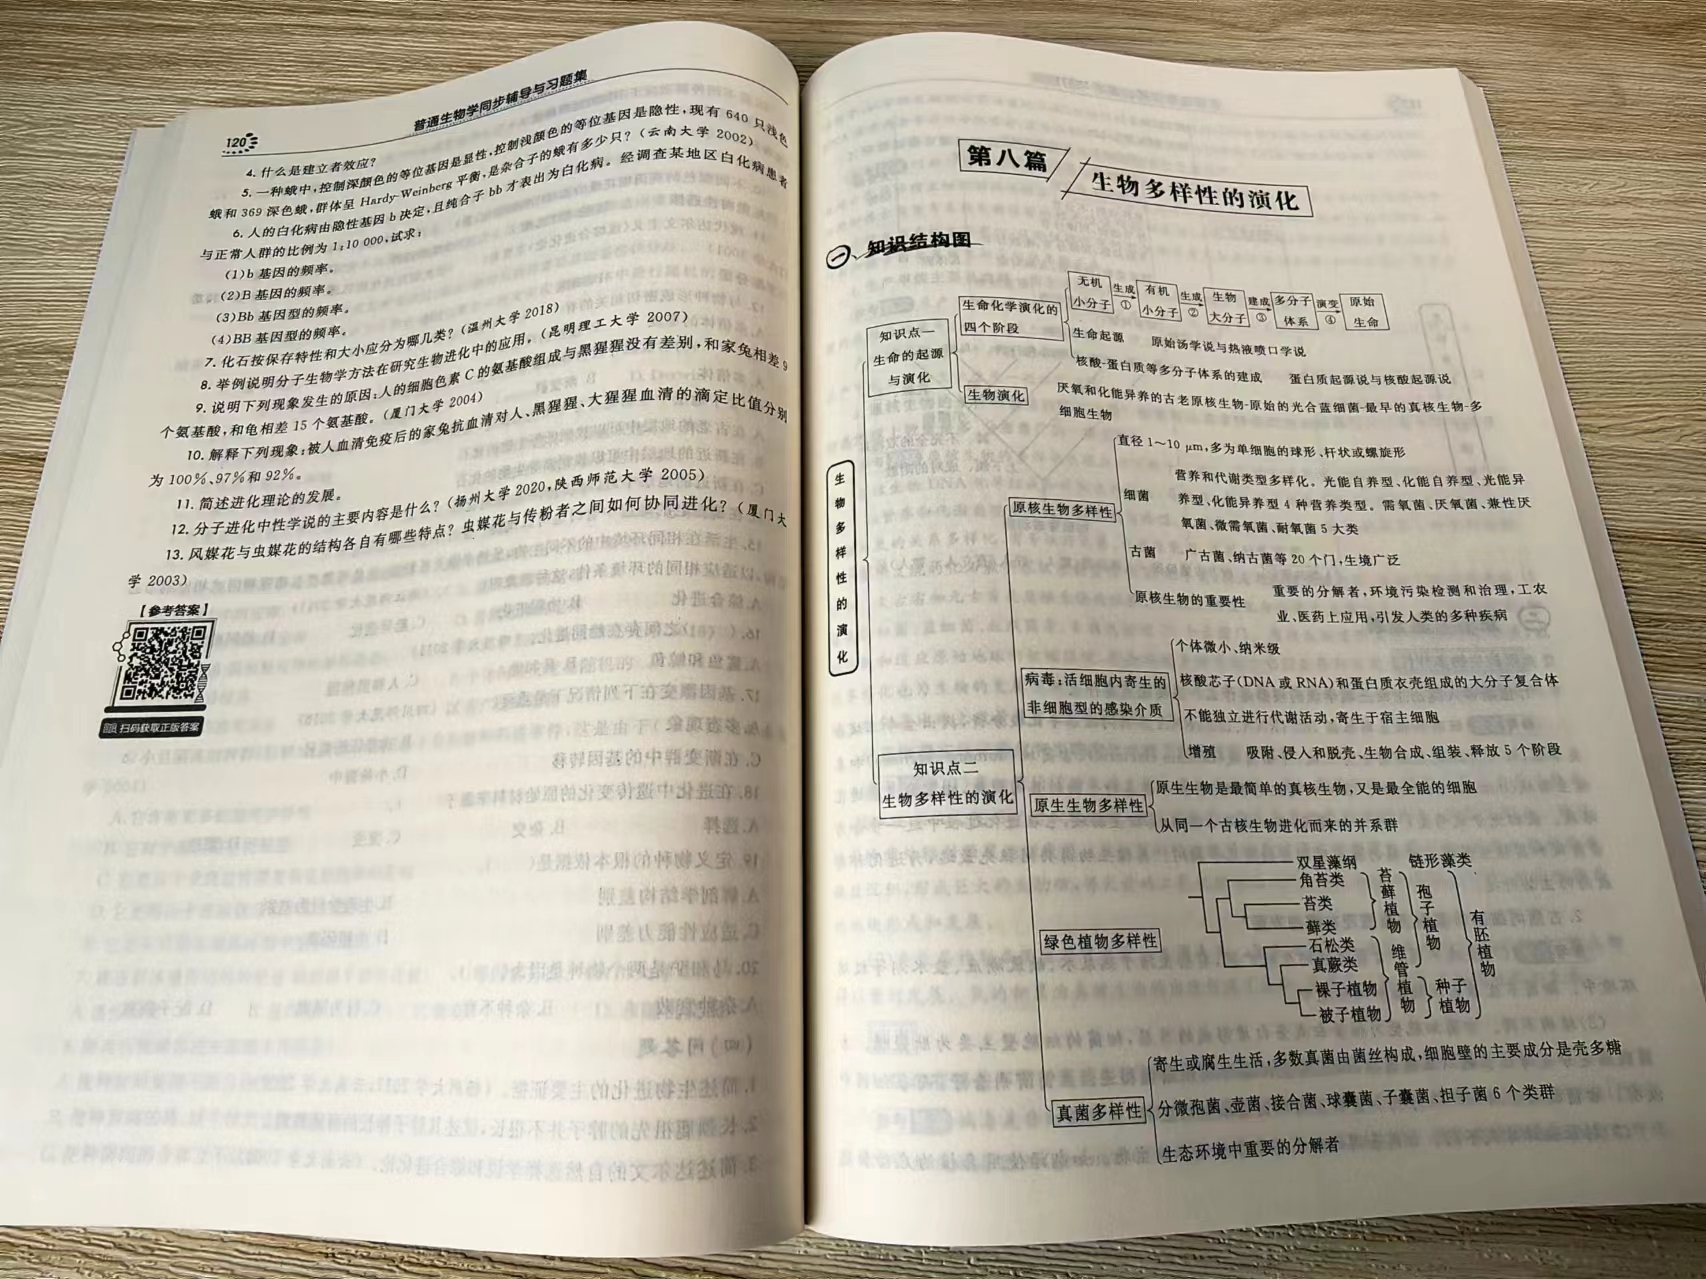 普通生物学同步辅导与习题集
120
4. 什么是建立者效应?
5. 一种蛾中,控制深颜色的等位基因是显性,控制浅颜色的等位基因是隐性,现有 640 只浅色
蛾和 369 深色蛾,群体呈 Hardy-Weinberg 平衡,是杂合子的蛾有多少只?(云南大学 2002)
6. 人的白化病由隐性基因 b 决定,且纯合子 bb 才表出为白化病。经调查某地区白化病患者
与正常人群的比例为 1:10 000,试求:
(1)b 基因的频率。
(2)B 基因的频率。
(3)Bb 基因型的频率。
(4)BB 基因型的频率。
7. 化石按保存特性和大小应分为哪几类?(温州大学 2018)
8. 举例说明分子生物学方法在研究生物进化中的应用。(昆明理工大学 2007)
9. 说明下列现象发生的原因:人的细胞色素 C 的氨基酸组成与黑猩猩没有差别,和家兔相差 9
个氨基酸,和龟相差 15 个氨基酸。(厦门大学 2004)
10. 解释下列现象:被人血清免疫后的家兔抗血清对人、黑猩猩、大猩猩血清的滴定比值分别
为 100%、97%和 92%。
11. 简述进化理论的发展。
12. 分子进化中性学说的主要内容是什么?(扬州大学 2020,陕西师范大学 2005)
13. 风媒花与虫媒花的结构各自有哪些特点?虫媒花与传粉者之间如何协同进化?(厦门大
学 2003)
【参考答案】
扫码获取正版答案
第八篇
生物多样性的演化
一 知识结构图
生物多样性的演化
知识点一
生命的起源
与演化
生命化学演化的
四个阶段
无机
小分子
生成
①
有机
小分子
生成
②
生物
大分子
建成
③
多分子
体系
演变
④
原始
生命
生命起源 原始汤学说与热液喷口学说
核酸-蛋白质等多分子体系的建成 蛋白质起源说与核酸起源说
生物演化
厌氧和化能异养的古老原核生物-原始的光合蓝细菌-最早的真核生物-多
细胞生物
知识点二
生物多样性的演化
原核生物多样性
直径 1~10 μm,多为单细胞的球形、杆状或螺旋形
细菌
营养和代谢类型多样化。光能自养型、化能自养型、光能异
养型、化能异养型 4 种营养类型。需氧菌、厌氧菌、兼性厌
氧菌、微需氧菌、耐氧菌 5 大类
古菌 广古菌、纳古菌等 20 个门,生境广泛
原核生物的重要性
重要的分解者,环境污染检测和治理,工农
业、医药上应用,引发人类的多种疾病
病毒:活细胞内寄生的
非细胞型的感染介质
个体微小、纳米级
核酸芯子(DNA 或 RNA)和蛋白质衣壳组成的大分子复合体
不能独立进行代谢活动,寄生于宿主细胞
增殖 吸附、侵入和脱壳、生物合成、组装、释放 5 个阶段
原生生物多样性
原生生物是最简单的真核生物,又是最全能的细胞
从同一个古核生物进化而来的并系群
绿色植物多样性
双星藻纲 链形藻类
角苔类
苔类
藓类
石松类
真蕨类
裸子植物
被子植物
苔藓植物
维管植物
孢子植物
种子
植物
有胚植物
真菌多样性
寄生或腐生生活,多数真菌由菌丝构成,细胞壁的主要成分是壳多糖
分微孢菌、壶菌、接合菌、球囊菌、子囊菌、担子菌 6 个类群
生态环境中重要的分解者